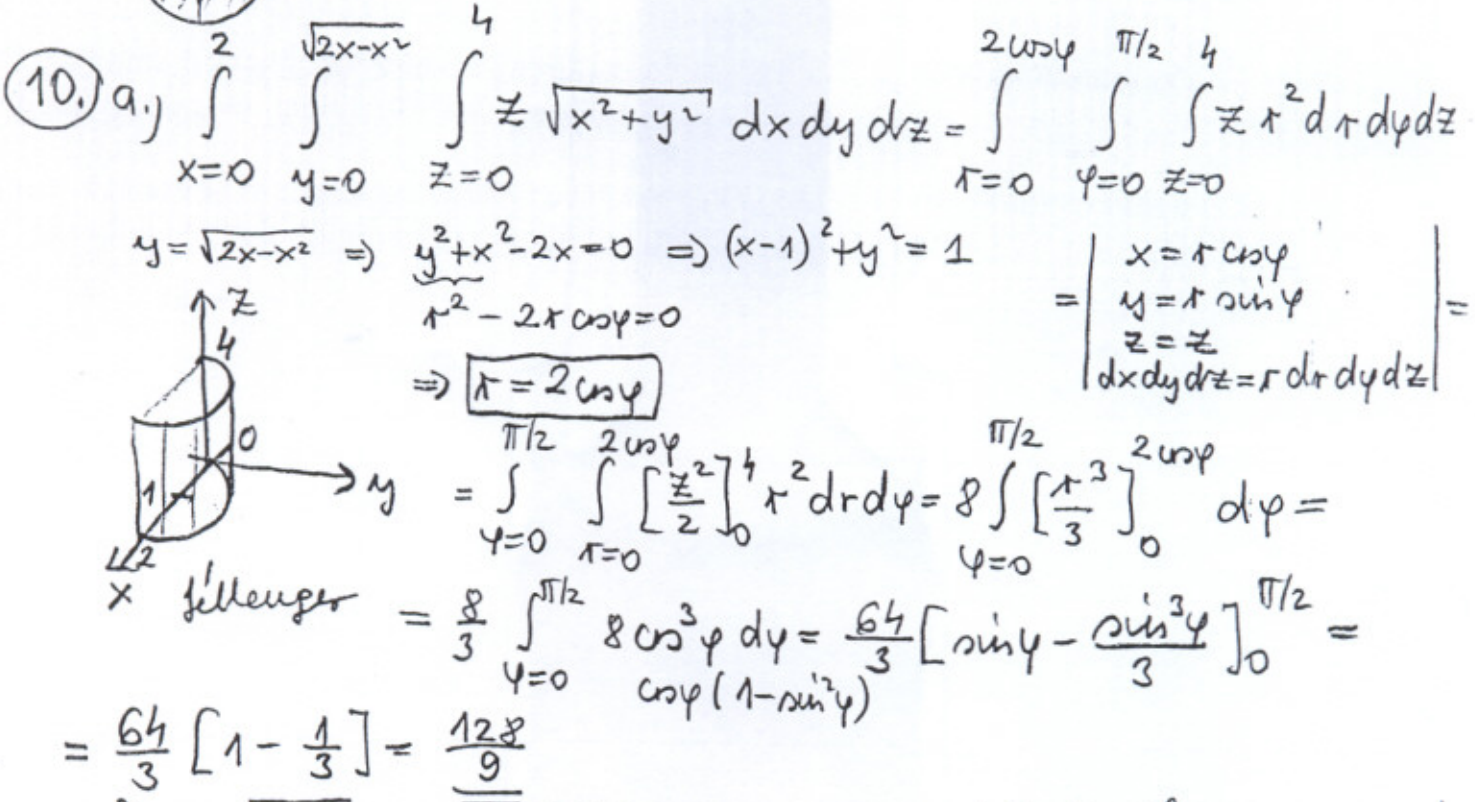 10. a.) ∫_{x=0}^{2} ∫_{y=0}^{√(2x-x²)} ∫_{z=0}^{4} z √(x²+y²) dx dy dz = ∫_{r=0}^{2cosφ} ∫_{φ=0}^{π/2} ∫_{z=0}^{4} z r² dr dφ dz
y = √(2x-x²) ⇒ y²+x²-2x=0 ⇒ (x-1)²+y²=1
r² - 2r cosφ=0
⇒ r = 2cosφ
= | x = r cosφ
y = r sinφ
z = z
dx dy dz = r dr dφ dz | =
z
4
0
y
1
2
x
félhenger
= ∫_{φ=0}^{π/2} ∫_{r=0}^{2cosφ} [z²/2]_0^4 r² dr dφ = 8 ∫_{φ=0}^{π/2} [r³/3]_0^{2cosφ} dφ =
= 8/3 ∫_{φ=0}^{π/2} 8cos³φ dφ = 64/3 [sinφ - sin³φ/3]_0^{π/2} =
cosφ(1-sin²φ)
= 64/3 [1 - 1/3] = 128/9